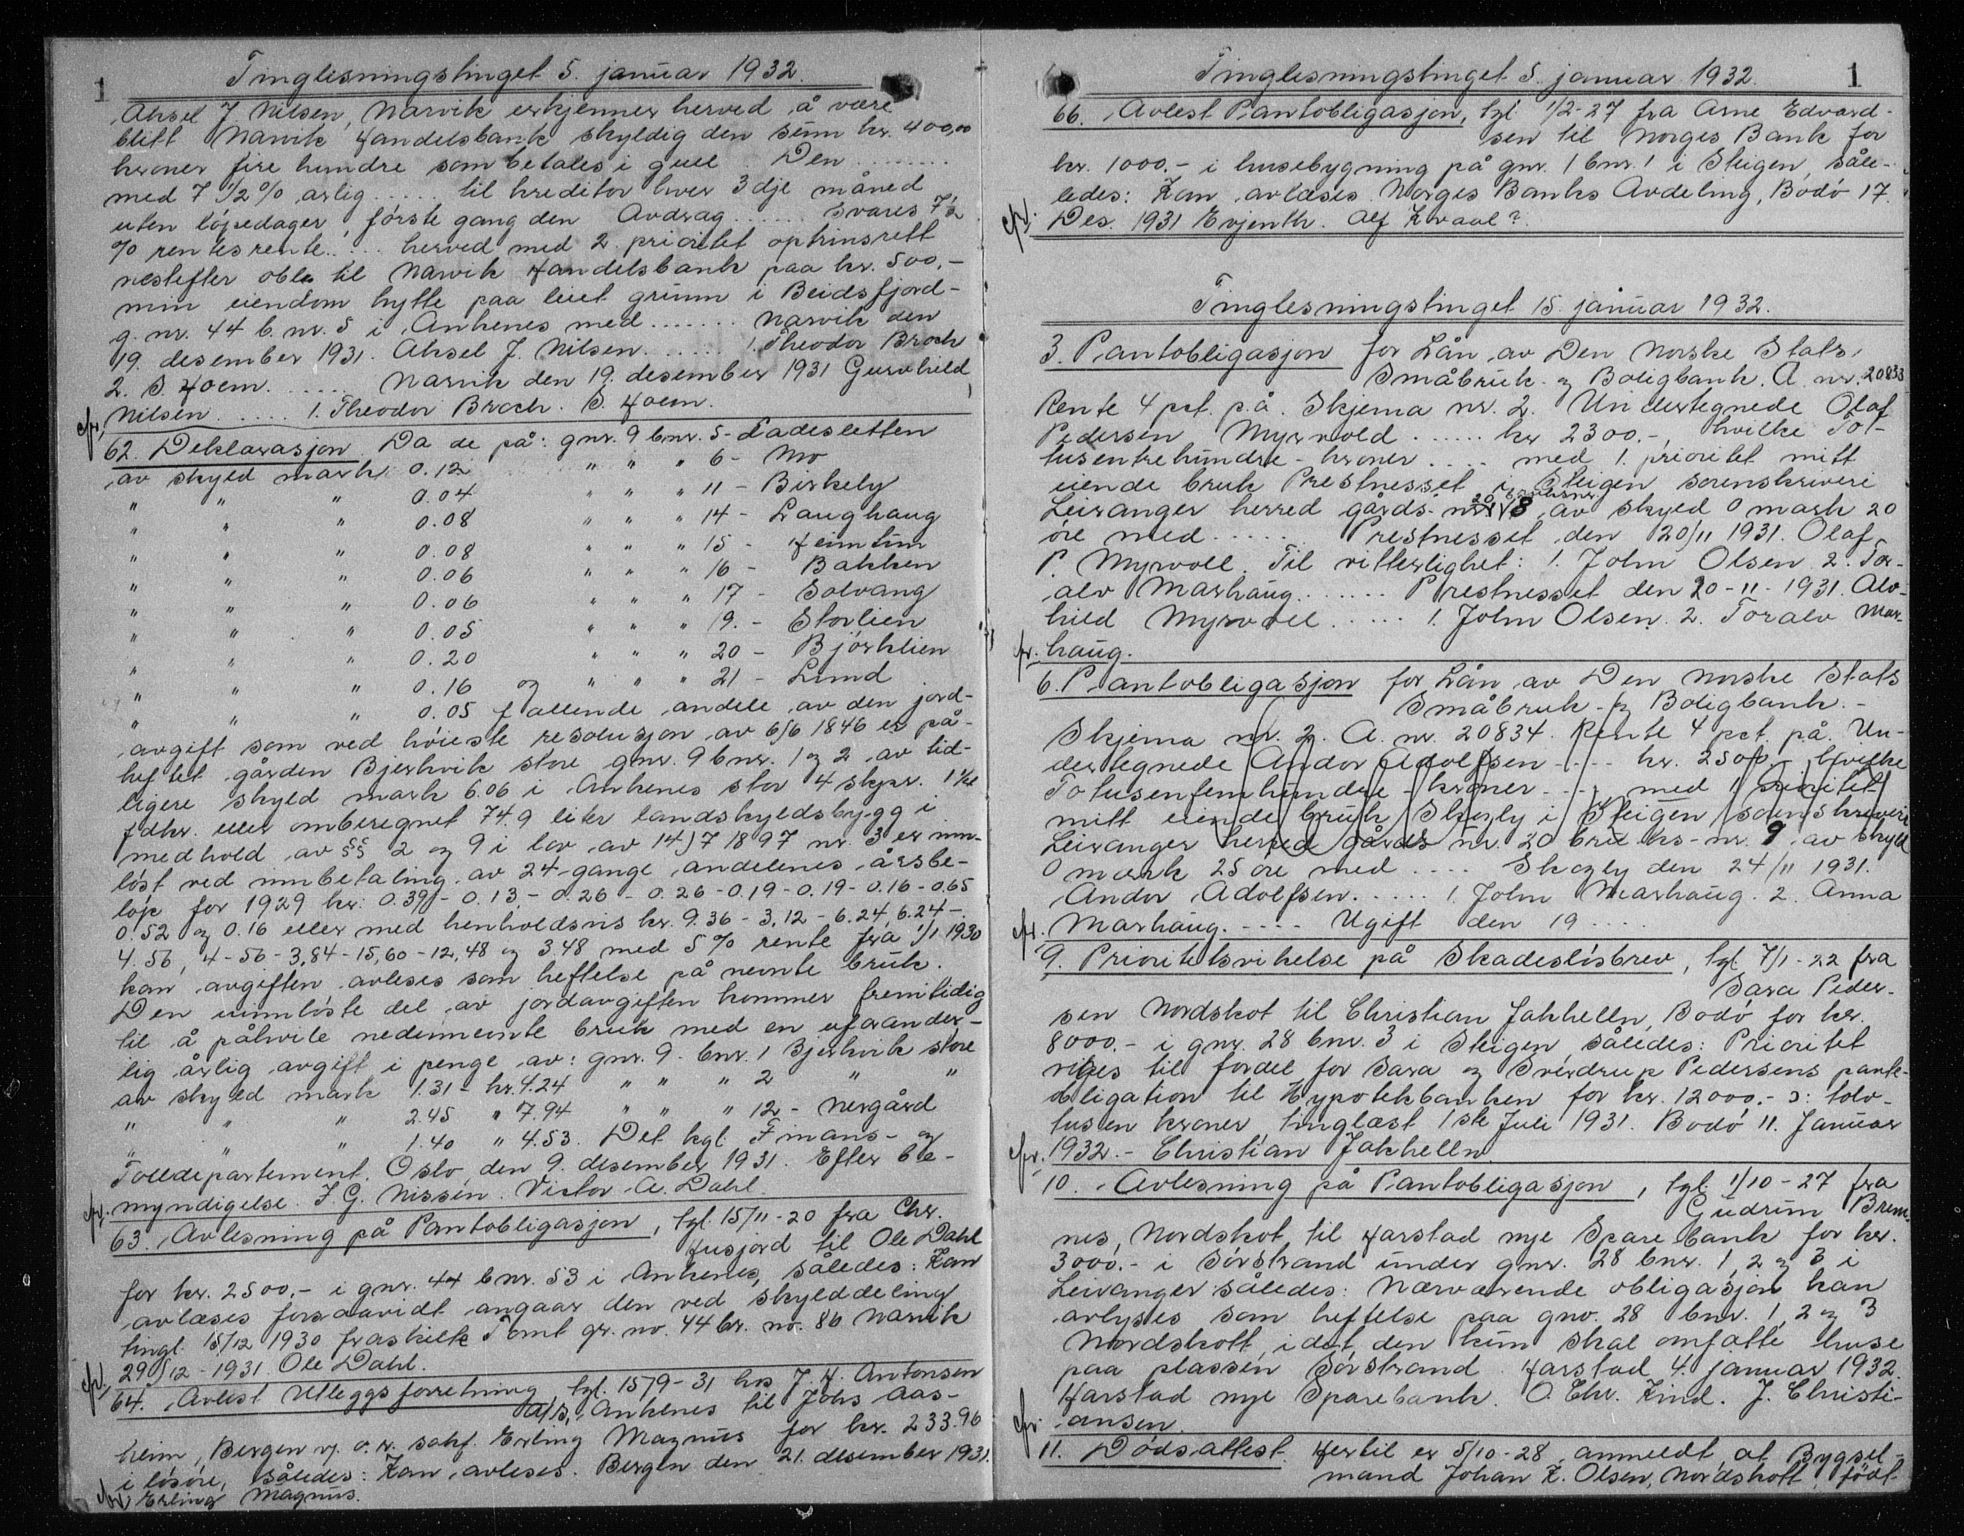 1 Tinglesningstinget 5. januar 1932.
Aksel J. Nilsen, Narvik erkjenner herved å være
blitt Narvik Handelsbank skyldig den sum kr. 400,00
kroner fire hundre som betales i gull. Den ........
med 7 1/2 % årlig ..... til kreditor hver 3dje måned
uten løpedager, første gang den Avdrag ...... svares 7 1/2
% rentesrente .... herved med 2. prioritet optrinsrett
nestefter obl. til Narvik Handelsbank paa kr. 500,-
min eiendom hytte paa leiet grunn i Beidsfjord-
g. nr. 44 b. nr. 5 i Ankenes med ....... Narvik den
19. desember 1931. Aksel J. Nilsen ...... 1. Theodor Broch
2. S. Hoem. ...... Narvik den 19. desember 1931 Gunvhild
Nilsen ..... 1. Theodor Broch. S. Hoem.
62. Deklarasjon Da de på: gnr. 9 bnr. 5 - Ladesletten
av skyld mark 0.12 " " " 6 - Mo
" " " 0.04 " " " 11 - Birkely
" " " 0.08 " " " 14 - Langhaug
" " " 0.08 " " " 15 - Heimtun
" " " 0.06 " " " 16 - Bakken
" " " 0.06 " " " 17 - Solvang
" " " 0.05 " " " 19. - Storlien
" " " 0.20 " " " 20 - Bjørklien
" " " 0.16 og " " " 21 - Lund
" " " 0.05 fallende andele av den jord-
avgift som ved høieste resolusjon av 6/6 1846 er på-
heftet gården Bjerkvik store gnr. 9 bnr. 1 og 2 av tid-
ligere skyld mark 6.06 i Ankenes stor 4 skpr. 1 1/2
fdkr. eller omberegnet 749 liter landskyldsbygg i
medhold av §§ 2 og 9 i lov av 14/7 1897 nr. 3 er inn-
løst ved innbetaling av 24-gange andelenes årsbe-
løp for 1929 kr. 0.39 - 0.13 - 0.26 - 0.26 - 0.19 - 0.19 - 0.16 - 0.65
0.52 og 0.16 eller med henholdsvis kr. 9.36 - 3,12 - 6.24, 6.24 -
4.56, 4-56 - 3.84 - 15,60 - 12,48 og 3 48 med 5 % rente fra 1/1 1930
kan avgiften avleses som heftelse på nevnte bruk.
Den uinnløste del av jordavgiften kommer fremtidig
til å påhvile nedennevnte bruk med en uforander-
lig årlig avgift i penge av: gnr. 9. bnr. 1 Bjerkvik store
av skyld mark 1.31 - kr. 4.24 " " " 2 " "
" " " 2.45 " 7.94 " " " 12 - Nergård
" " " 1.40 " 4.53. Det kgl. Finans- og
Tolldepartement. Oslo, den 9. desember 1931. Efter be-
myndigelse. J. G. Nissen. Victor A. Dahl.
63. Avlesning på Pantobligasjon, tgl. 15/11-20 fra Chr.
Husjord til Ole Dahl
for kr. 2500,- i gnr. 44 bnr. 53 i Ankenes, således: Kan
avlæses forsaavidt angaar den ved skylddeling
tingl. 15/12 1930 fraskilte Tomt gr. no. 44 br. no. 86 Narvik
29/12 - 1931. Ole Dahl.
64. Avlest Utleggsforretning, tgl. 15/9-31 hos J. H. Antonsen
A/S, Ankenes til Johs Aas-
heim, Bergen v. o. r. sakf. Erling Magnus for kr. 233.96
i løsøre, således: Kan avleses. Bergen den 21. desember 1931.
Erling Magnus.
Tinglesningstinget 5. januar 1932. 1
66. Avlest Pantobligasjon, tgl. 1/2-27 fra Arne Edvard-
sen til Norges Bank for
kr. 1000.- i husebygning på gnr. 1 bnr. 1 i Steigen, såle-
ledes: Kan avlæses. Norges Banks Avdeling, Bodø 17.
Des. 1931 Evjenth. Alf Kvaal?
Tinglesningstinget 15. januar 1932.
3. Pantobligasjon for Lån av Den Norske Stats
Småbruk- og Boligbank. A. nr. 20833
Rente 4 pct. p.å. Skjema nr. 2. Undertegnede Olaf
Pedersen Myrvold ...... kr 2300,-, hvilke To-
tusentrehundre - kroner .... med 1. prioritet mitt
eiende bruk Prestnesset i Steigen sorenskriveri
Leiranger herred gårds-nr. 20 bruksnr. 18 av skyld 0 mark 20
øre med ...... Prestnesset den 20/11 1931. Olaf
P. Myrvoll. Til vitterlighet: 1. John Olsen 2. Tor-
alv Marhaug ...... Prestnesset den 20-11-1931. Alv-
hild Myrvoll ..... 1. John Olsen. 2. Toralv Mar-
haug.
6. Pantobligasjon for Lån av Den Norske Stats
Småbruk- og Boligbank.-
Skjema nr. 2. A. nr. 20834. Rente 4 pct. på. Un-
dertegnede Andor Adolfsen .... kr. 2500,- hvilke
Totusenfemhundre - kroner .... med 1. prioritet
mitt eiende bruk Skogly i Steigen sorenskriveri
Leiranger herred gårds nr. 20 bruks-nr. 9 av skyld
0 mark 25 øre med .... Skogly den 24/11 1931.
Andor Adolfsen ..... 1. John Marhaug. 2. Anna
Marhaug. .... Ugift den 19 ....
9. Prioritetsvikelse på Skadesløsbrev, tgl. 7/1-22 fra
Sara Peder-
sen Nordskot til Christian Jakhelln, Bodø for kr.
8000.- i gnr. 28 bnr. 3 i Steigen, således: Prioritet
vikes til fordel for Sara og Sverdrup Pedersens pant-
obligation til Hypotekbanken for kr. 12000.- ɔ: tolv-
tusen kroner tinglæst 1ste Juli 1931. Bodø 11. Januar
1932. - Christian Jakhelln.
10. Avlesning på Pantobligasjon, tgl. 1/10-27 fra
Gudrun Brem-
nes, Nordskot til Harstad nye Sparebank for kr.
3000.- i Sørstrand under gnr. 28 bnr. 1, 2 og 3 i
Leiranger således: Nærværende obligasjon kan
avlyses som heftelse paa gno. 28 bnr. 1, 2 og 3
Nordskott, idet den kun skal omfatte huse
paa plassen Sørstrand. Harstad 4. januar 1932.
Harstad nye Sparebank. O. Chr. Kind. J. Christi-
ansen.
11. Dødsattest. Hertil er 5/10-28 anmeldt at Bygsel-
mand Johan K. Olsen, Nordskott, født